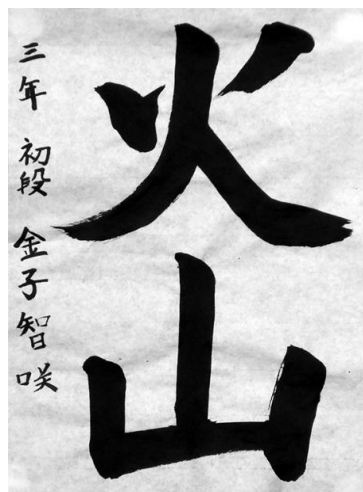 火山
三年 初段 金子智咲